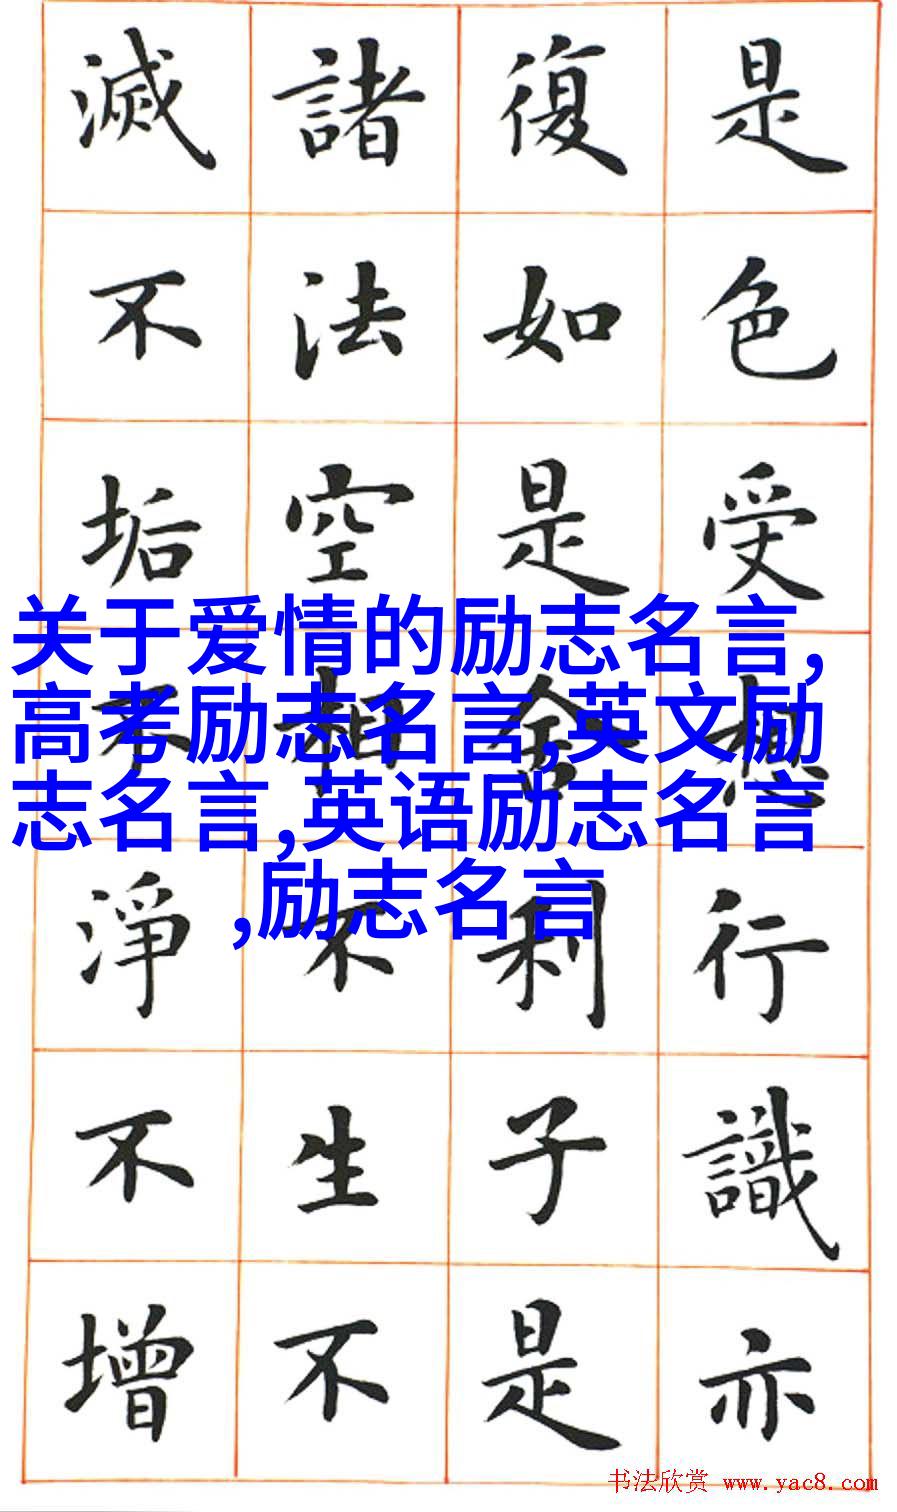 是色受想行識亦
復如是舍利子是
諸法空相不生不
滅不垢不淨不增
关于爱情的励志名言,
高考励志名言,英文励
志名言,英语励志名言
,励志名言
书法欣赏 www.yac8.com